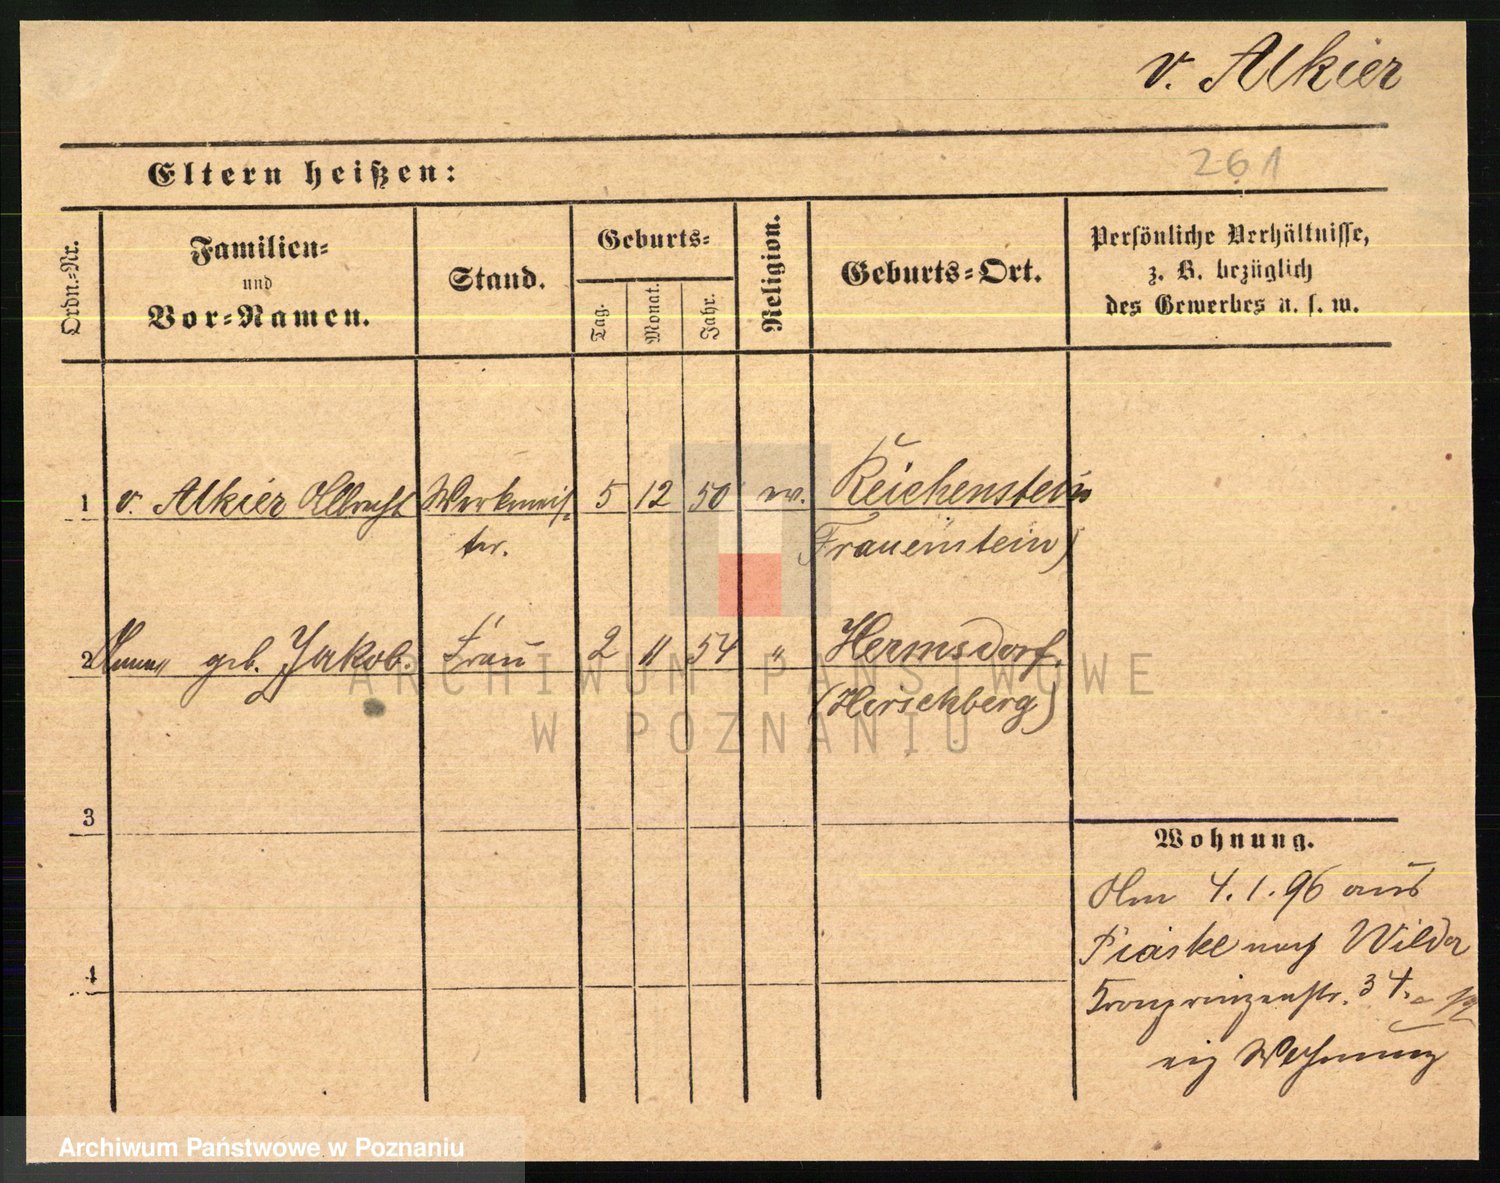 v. Alkier
261
Eltern heißen:
Ordn.-Nr.
Familien-
und
Vor-Namen.
Stand.
Geburts-
Tag.
Monat.
Jahr.
Religion.
Geburts-Ort.
Persönliche Verhältnisse,
z. B. bezüglich
des Gewerbes u. s. w.
1 v. Alkier Albrecht Werkmeis- 5 12 50 ev. Reichenstein
ter. Frauenstein)
2 Anna geb. Jakob. Frau 2 11 54 " Hermsdorf.
(Hirschberg)
3
4
Wohnung.
Am 4.1.96 aus
Piaske nach Wilda
Kronprinzenstr. 34.
eig Wohnung
ARCHIWUM PAŃSTWOWE
W POZNANIU
Archiwum Państwowe w Poznaniu